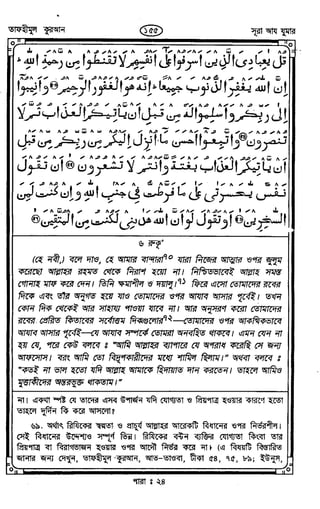 তাফহীমুল কুরআন ১৫৫ সূরা আয যুমার
قُلْ يٰعِبَادِىَ الَّذِيْنَ اَسْرَفُوْا عَلٰٓى اَنْفُسِهِمْ لَا تَقْنَطُوْا مِنْ رَّحْمَةِ اللّٰهِ ؕ
اِنَّ اللّٰهَ يَغْفِرُ الذُّنُوْبَ جَمِيْعًا ؕ اِنَّهٗ هُوَ الْغَفُوْرُ الرَّحِيْمُ ۝ وَاَنِيْبُوْٓا
اِلٰى رَبِّكُمْ وَاَسْلِمُوْا لَهٗ مِنْ قَبْلِ اَنْ يَّاْتِيَكُمُ الْعَذَابُ ثُمَّ لَا
تُنْصَرُوْنَ ۝ وَاتَّبِعُوْٓا اَحْسَنَ مَآ اُنْزِلَ اِلَيْكُمْ مِّنْ رَّبِّكُمْ مِّنْ قَبْلِ
اَنْ يَّاْتِيَكُمُ الْعَذَابُ بَغْتَةً وَّاَنْتُمْ لَا تَشْعُرُوْنَ ۝ اَنْ تَقُوْلَ
نَفْسٌ يّٰحَسْرَتٰى عَلٰى مَا فَرَّطْتُّ فِىْ جَنْۢبِ اللّٰهِ وَاِنْ كُنْتُ لَمِنَ
السّٰخِرِيْنَ ۝ اَوْ تَقُوْلَ لَوْ اَنَّ اللّٰهَ هَدٰىنِىْ لَكُنْتُ مِنَ الْمُتَّقِيْنَ ۝
৬ রুকূ'
(হে নবী,) বলে দাও, হে আমার বান্দারা৭০ যারা নিজের আত্মার ওপর জুলুম
করেছো আল্লাহর রহমত থেকে নিরাশ হয়ো না। নিশ্চিতভাবেই আল্লাহ সমস্ত
গোনাহ মাফ করে দেন। তিনি ক্ষমাশীল ও দয়ালু।৭১ ফিরে এসো তোমাদের রবের
দিকে এবং তাঁর অনুগত হয়ে যাও তোমাদের ওপর আযাব আসার পূর্বেই। তখন
কোন দিক থেকেই আর সাহায্য পাওয়া যাবে না। আর অনুসরণ করো তোমাদের
রবের প্রেরিত কিতাবের সর্বোত্তম দিকগুলোর৭২—তোমাদের ওপর আকস্মিকভাবে
আযাব আসার পূর্বেই—যে আযাব সম্পর্কে তোমরা অনবহিত থাকবে। এমন যেন না
হয় যে, পরে কেউ বলবে : "আমি আল্লাহর ব্যাপারে যে অপরাধ করেছি সে জন্য
আফসোস। বরং আমি তো বিদ্রূপকারীদের মধ্যে শামিল ছিলাম।" অথবা বলবে :
"কতই না ভাল হতো যদি আল্লাহ আমাকে হিদায়াত দান করতেন। তাহলে আমিও
মুত্তাকীদের অন্তরভুক্ত থাকতাম।"
না। একথা স্পষ্ট যে তাদের এসব উপার্জন যদি যোগ্যতা ও প্রিয়পাত্র হওয়ার কারণে হতো
তাহলে দুর্দিন কি করে আসলো?
৬৯. অর্থাৎ রিযিকের স্বল্পতা ও প্রাচুর্য আল্লাহর আরেকটি বিধানের ওপর নির্ভরশীল।
সেই বিধানের উদ্দেশ্যও সম্পূর্ণ ভিন্ন। রিযিকের বণ্টন ব্যক্তির যোগ্যতা কিংবা তার
প্রিয়পাত্র বা বিরাগভাজন হওয়ার ওপর আদৌ নির্ভর করে না। (এ বিষয়টি বিস্তারিত
জানার জন্য দেখুন, তাফহীমুল কুরআন, আত-তাওবা, টীকা ৫৪, ৭৫, ৮৯; ইউনুস,
পারা : ২৪